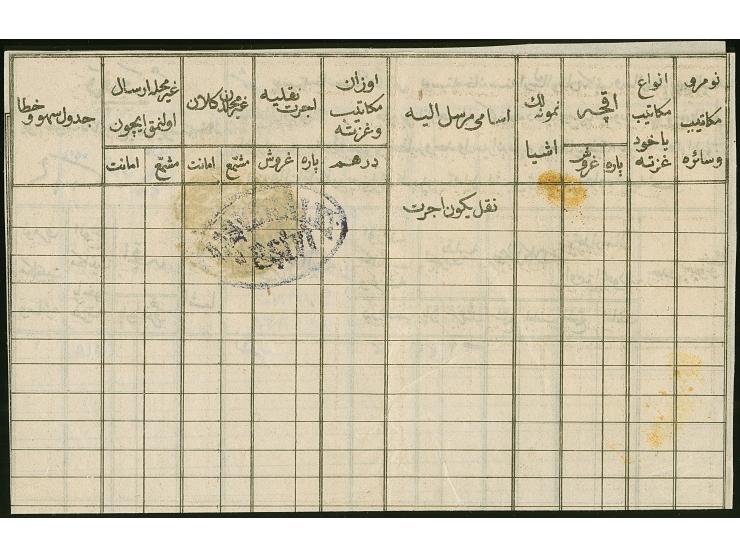 نومرو
مكاتيب
وسائره
انواع
مكاتيب
ياخود
غزته
اقچه
پاره
غروش
نمونه لك
اشيا
اسامئ مرسل اليه
نقل يكون اجرت
اوزان
مكاتيب
وغزته
درهم
اجرت نقليه
پاره
غروش
مشمّع
امانت
غير محله ارسال
اولنمق ايچون
مشمّع
امانت
جدول سهو و خطا